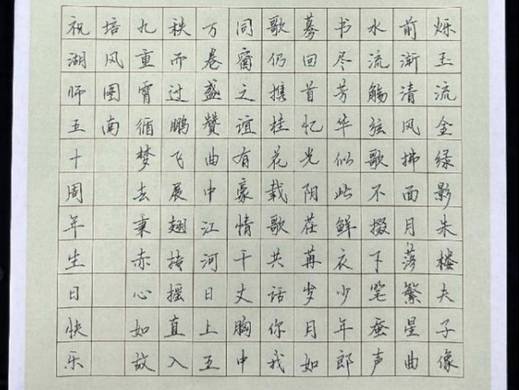 烁玉流金绿影朱楼夫子像
前渐清风拂面月落繁星曲
水流觞弦歌不掇下笔蚕声
书尽芳华似此鲜衣少年郎
蓦回首忆光阴荏苒岁月如
歌仍携桂花载歌共话你我
同窗之谊有豪情千丈胸中
万卷盛赞曲中江河日上五
秩而过鹏飞展翅抟摇直入
九重霄循梦去秉赤心如故
培风图南
祝湖师五十周年生日快乐